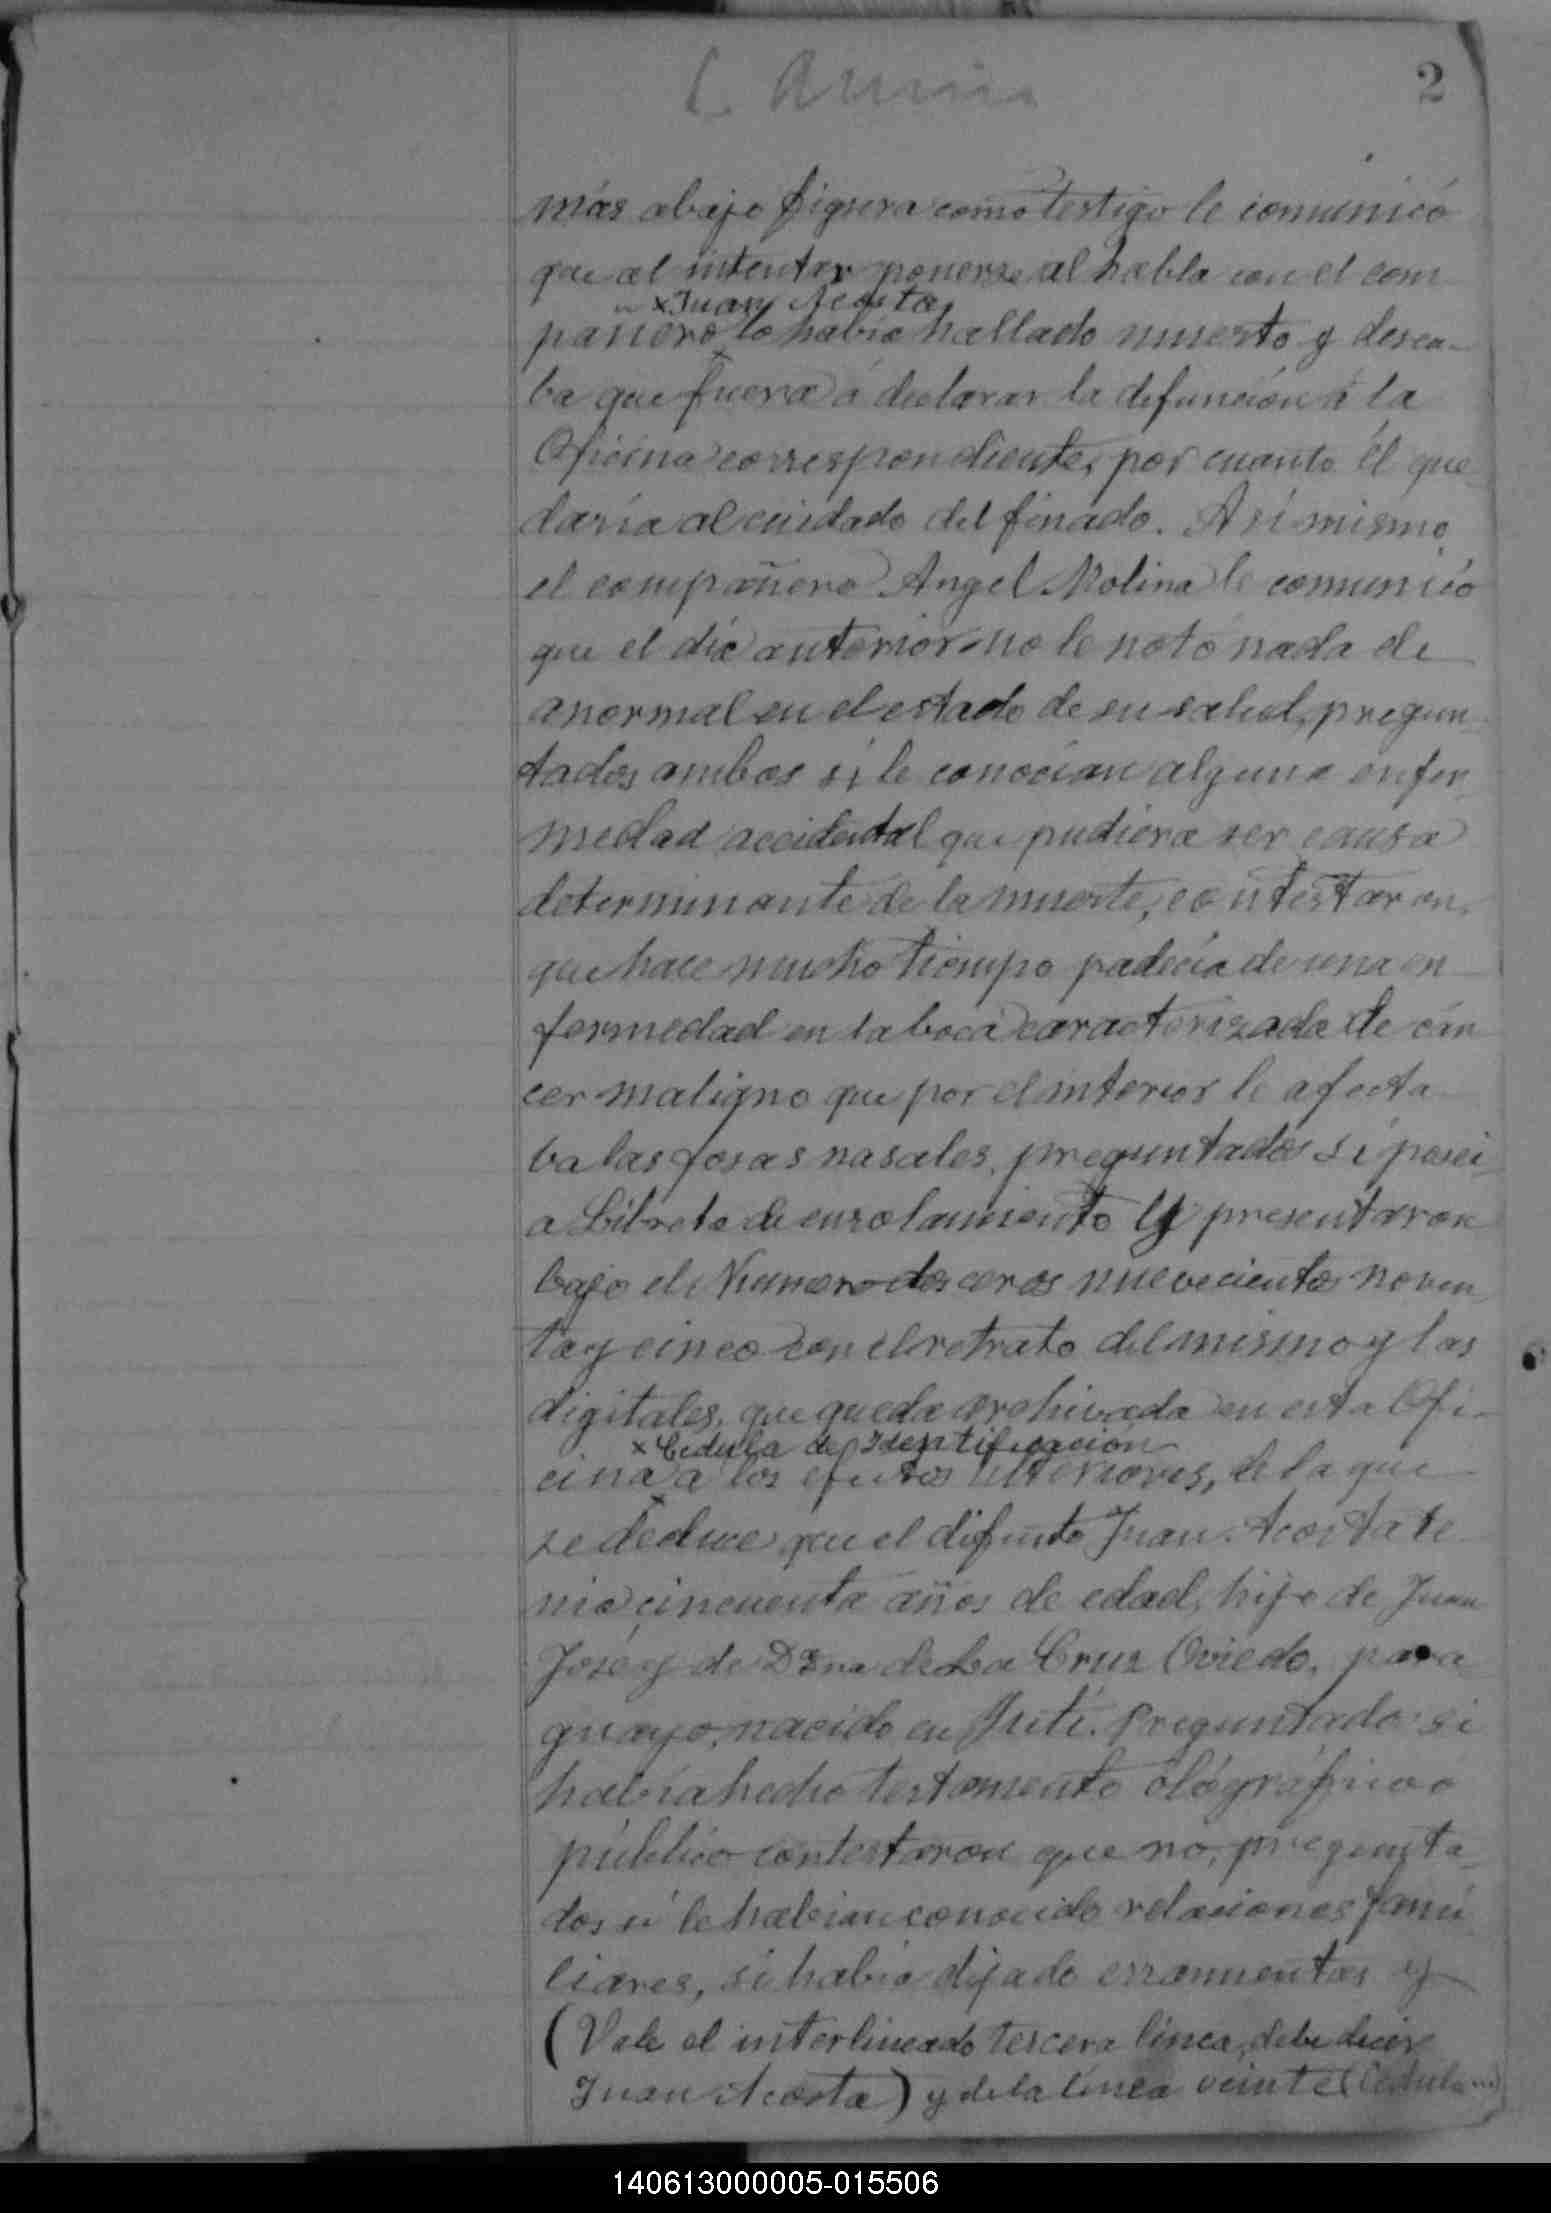 2
más abajo figura como testigo le comunicó
que al intentar ponerse al habla con el com
x Juan Acosta
pañero lo había hallado muerto y desea-
ba que fuera á declarar la defunción á la
Oficina correspondiente, por cuanto él que
daría al cuidado del finado. Así mismo
el compañero Angel Molina le comunicó
que el día anterior no le notó nada de
anormal en el estado de su salud, pregun-
tados ambos si le conocían alguna enfer-
medad accidental que pudiera ser causa
determinante de la muerte, contestaron,
que hace mucho tiempo padecía de una en
fermedad en la boca caracterizada de cán
cer maligno que por el interior le afecta
ba las fosas nasales, preguntados si poseí-
a Libreta de enrolamiento y presentaron
bajo el Numero dos ceros nuevecientos noven-
ta y cinco con el retrato del mismo y las
digitales, que queda archivada en esta Ofi-
x Cedula de Identificación
cina a los efectos ulteriores, de la que
se deduce que el difunto Juan Acosta te
nia cincuenta años de edad, hijo de Juan
José y de Dña de La Cruz Oviedo, para
guayo, nacido en Yuti. Preguntado si
había hecho testamento ológráfico o
público contestaron que no, pregunta-
dos si le habian conocido relaciones fami
liares, si había dejado erramientas y
(Vale el interlineado tercera línea, debe decir
Juan Acosta) y de la línea veinte (Cedula ...)
140613000005-015506